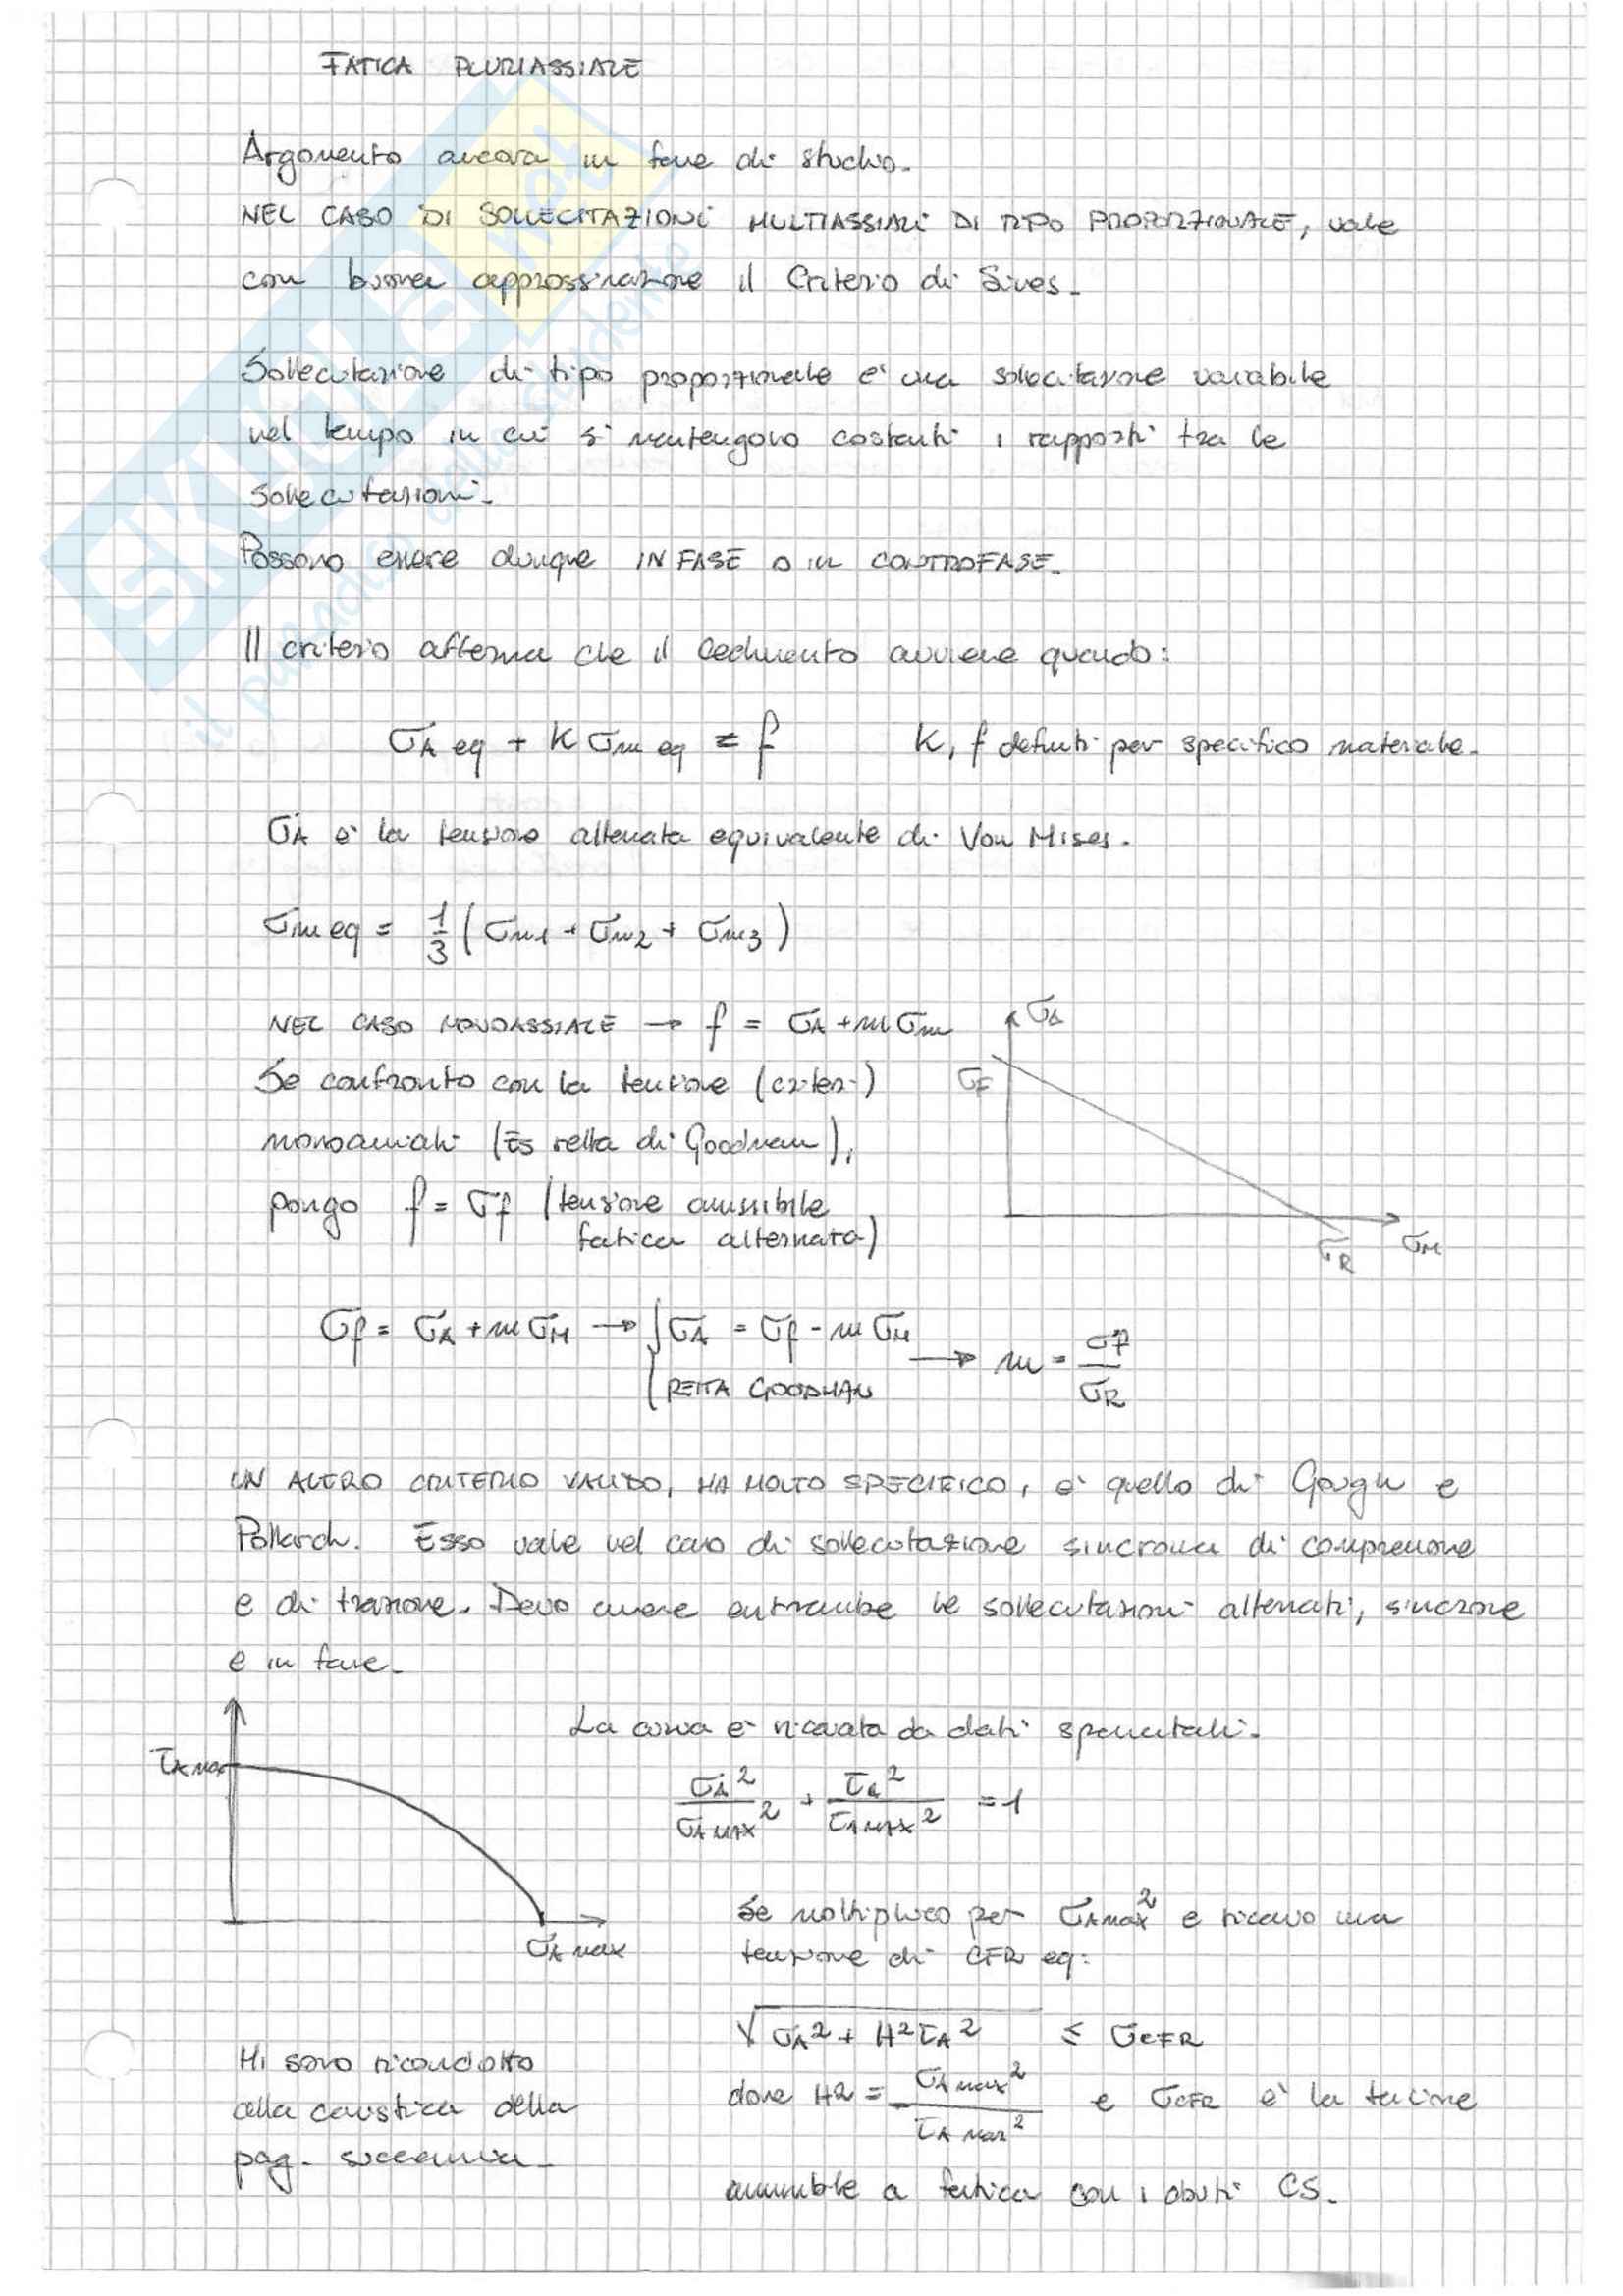 FATICA PLURIASSIALE
Argomento ancora in fase di studio.
NEL CASO DI SOLLECITAZIONI MULTIASSIALI DI TIPO PROPORZIONALE, vale
con buona approssimazione il Criterio di Sines.
Sollecitazione di tipo proporzionale è una sollecitazione variabile
nel tempo in cui si mantengono costanti i rapporti tra le
sollecitazioni.
Possono essere dunque IN FASE O in CONTROFASE.
Il criterio afferma che il cedimento avviene quando:
σA eq + K σm eq = f   K, f definiti per specifico materiale.
σA è la tensione alternata equivalente di Von Mises.
σm eq = 1/3 (σm1 + σm2 + σm3)
NEL CASO MONOASSIALE → f = σA + m σm
σA
Se confronto con la tensione (criteri)
σF
monoassiali (Es retta di Goodman),
pongo f = σf (tensione ammissibile
fatica alternata)
σR σM
σf = σA + m σM → { σA = σf - m σM
RETTA GOODMAN → m = σf / σR
UN ALTRO CRITERIO VALIDO, MA MOLTO SPECIFICO, è quello di Gough e
Pollard. Esso vale nel caso di sollecitazione sincrona di compressione
e di trazione. Devo avere entrambe le sollecitazioni alternati, sincrone
e in fase.
La curva è ricavata da dati sperimentali.
τA max
σA² / σA MAX² + τA² / τA MAX² = 1
σA max
Se moltiplico per σA max² e ricavo una
tensione di CFR eq:
√(σA² + H² τA²) ≤ σCFR
Mi sono ricondotto
alla caustica della
pag. successiva
dove H2 = σA max² / τA max² e σCFR è la tensione
ammissibile a fatica con i dovuti CS.
SKUOLA.net
il paradiso dello studente